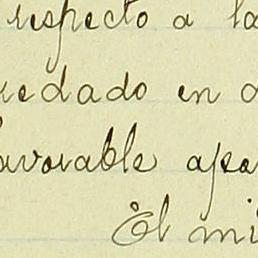 respecto a la
quedado en
favorable apa
El mi